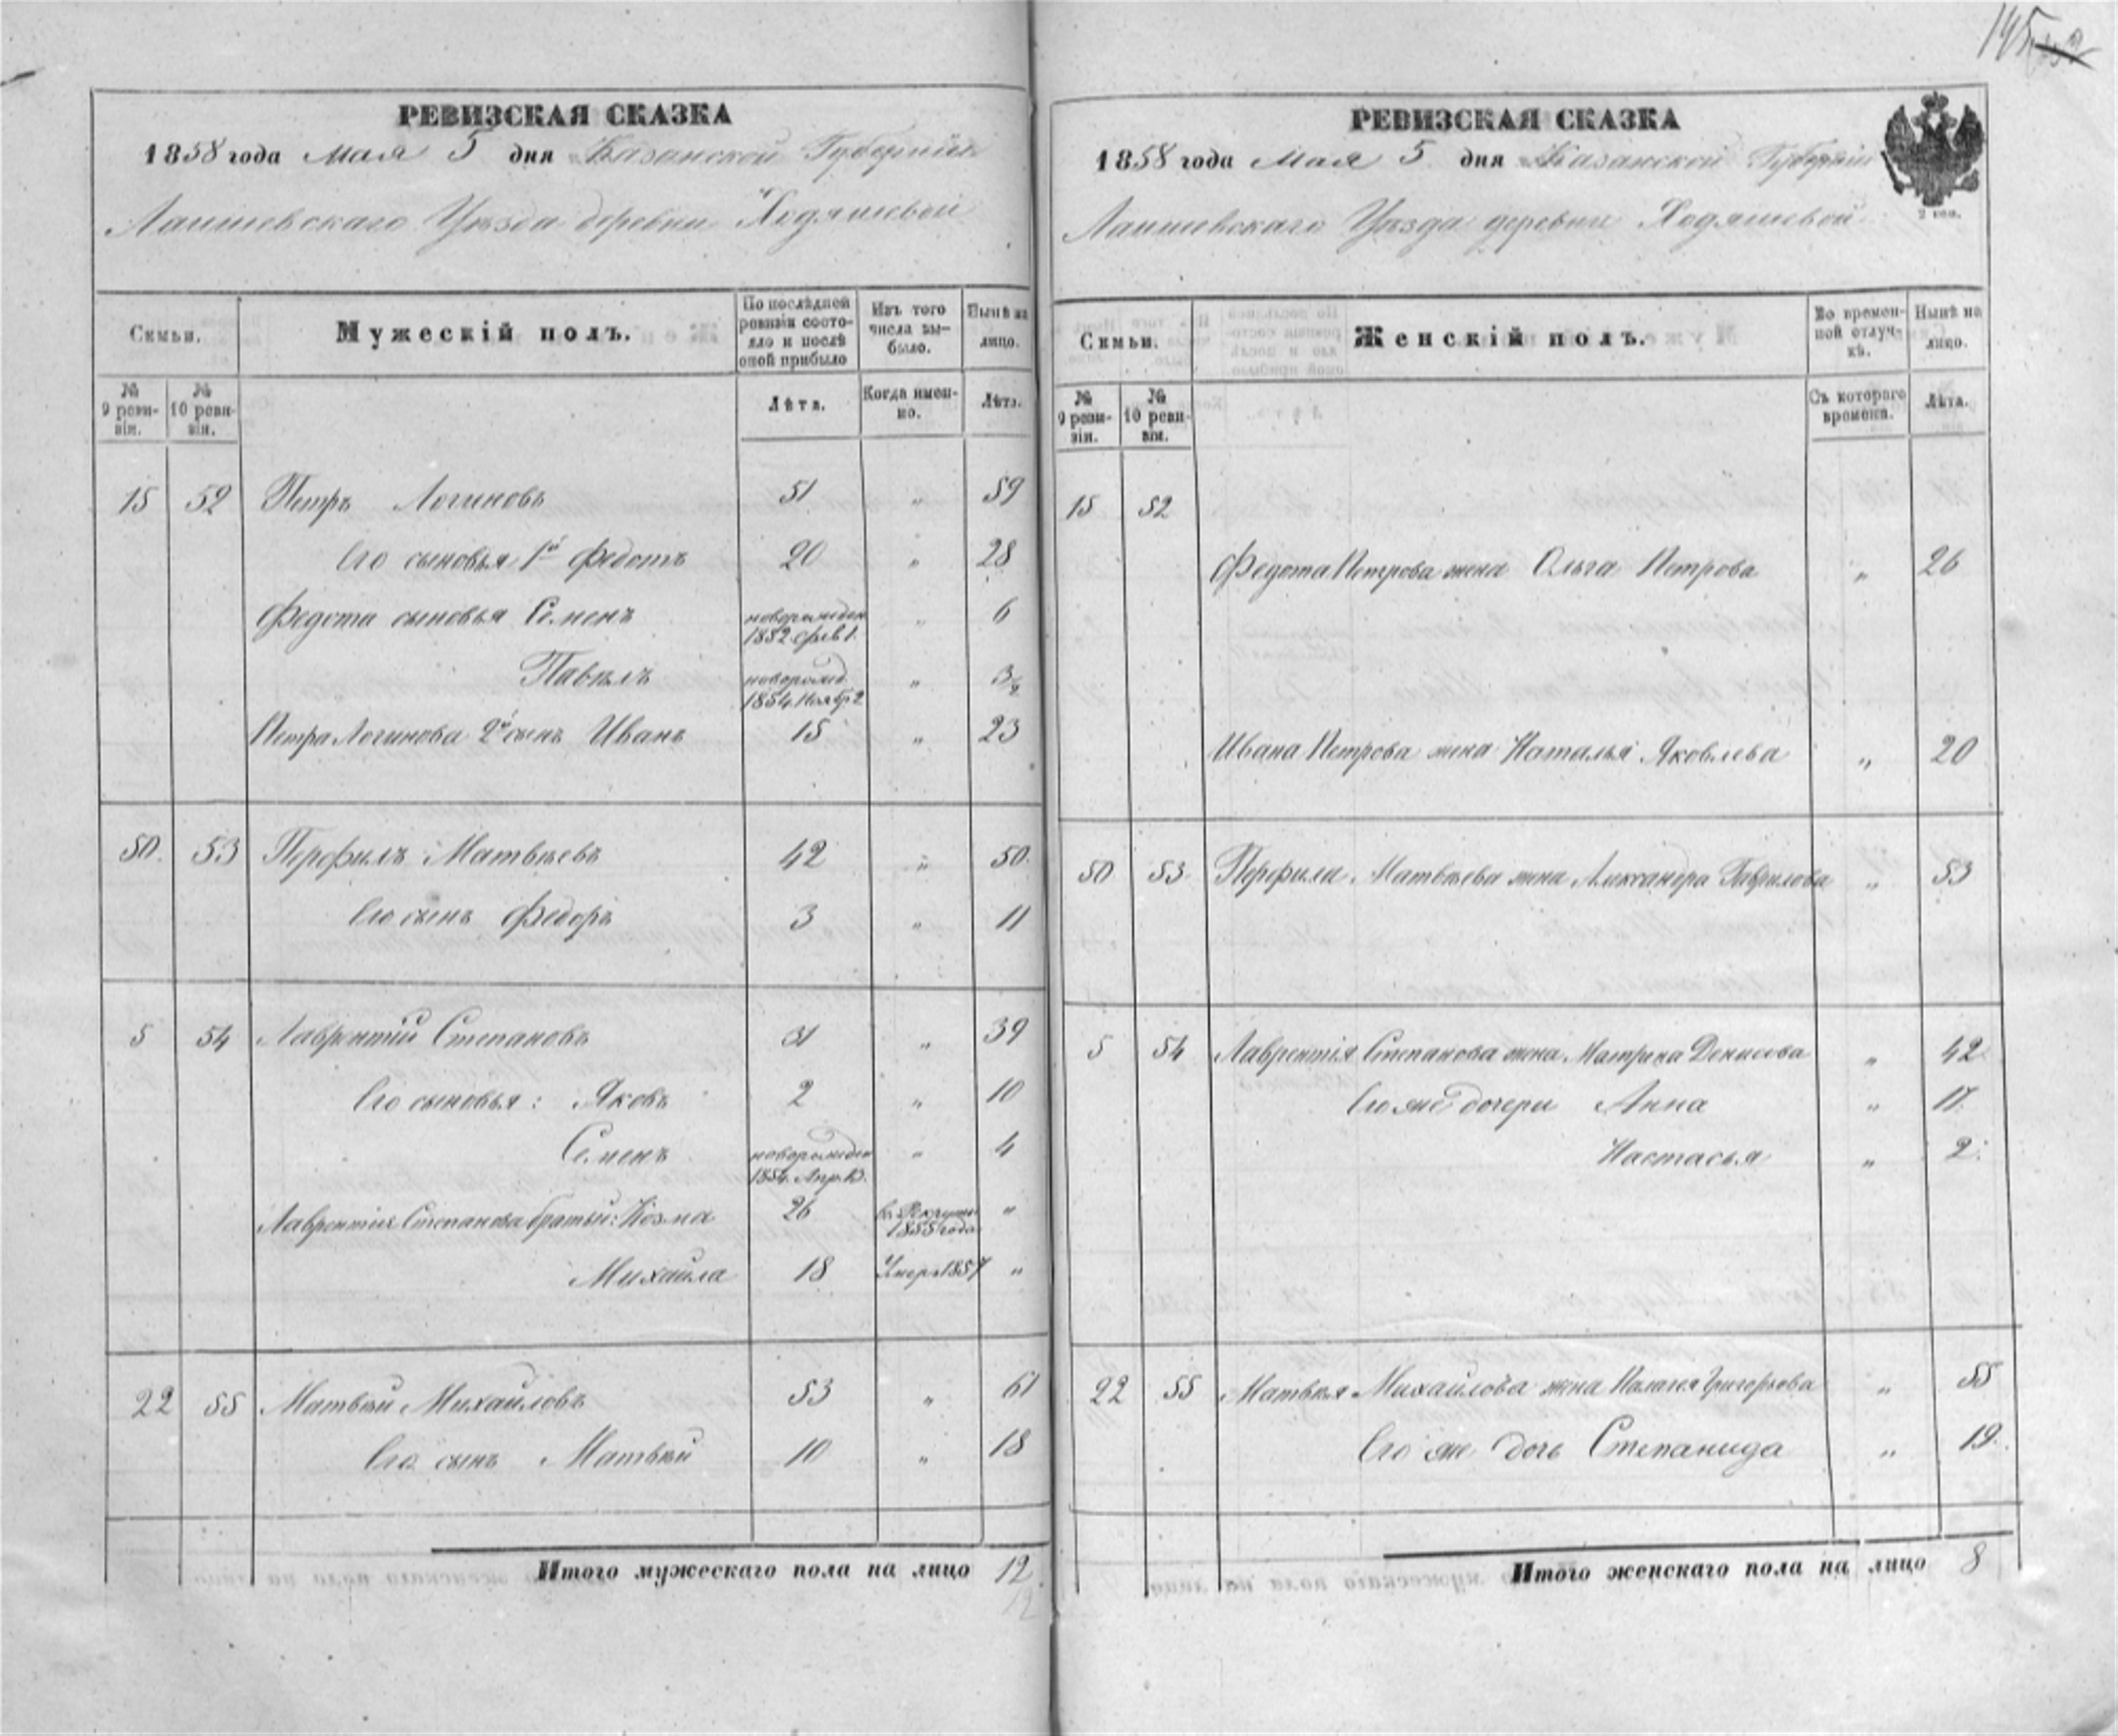 145
РЕВИЗСКАЯ СКАЗКА
1858 года Мая 5 дня Казанской Губернiи
Лаишевскаго Уѣзда деревни Ходяшевой
Семьи.
Мужескій полъ.
По послѣдней ревизіи состояло и послѣ оной прибыло
Изъ того числа выбыло.
Нынѣ на лицо.
№ 9 ревизіи.
№ 10 ревизіи.
Лѣта.
Когда именно.
Лѣта.
15 52 Петръ Логиновъ 51 " 59
Его сыновья 1й Федотъ 20 " 28
Федота сыновья Семенъ новорожден 1852 Фев 1. " 6
Павелъ новорожд. 1854 Ноябр 2 " 3½
Петра Логинова 2й сынъ Иванъ 15 " 23
50. 53 Перфилъ Матвѣевъ 42 " 50.
Его сынъ Федоръ 3 " 11
5 54 Лаврентій Степановъ 31 " 39
Его сыновья: Яковъ 2 " 10
Семенъ новорожден 1854. Апр. 13. " 4
Лаврентія Степанова братьи: Козма 26 в Рекруты 1855 года "
Михаила 18 Умеръ 1857 "
22 55 Матвѣй Михайловъ 53 " 61
Его сынъ Матвѣй 10 " 18
Итого мужескаго пола на лицо 12.
12
РЕВИЗСКАЯ СКАЗКА
1858 года Мая 5 дня Казанской Губернiи
Лаишевскаго Уѣзда деревни Ходяшевой
2 коп.
Семьи.
Женскій полъ.
Во временной отлучкѣ.
Нынѣ на лицо.
№ 9 ревизіи.
№ 10 ревизіи.
Съ котораго времена.
Лѣта.
15 52
Федота Петрова жена Ольга Петрова " 26
Ивана Петрова жена Наталья Яковлева " 20
50 53 Перфила Матвѣева жена Александра Гаврилова " 53
5 54 Лаврентія Степанова жена Матрена Денисова " 42
Его же дочери Анна " 17.
Настасья " 2.
22 55 Матвѣя Михайлова жена Палагея Григорьева " 55
Его же дочь Степанида " 19.
Итого женскаго пола на лицо 8